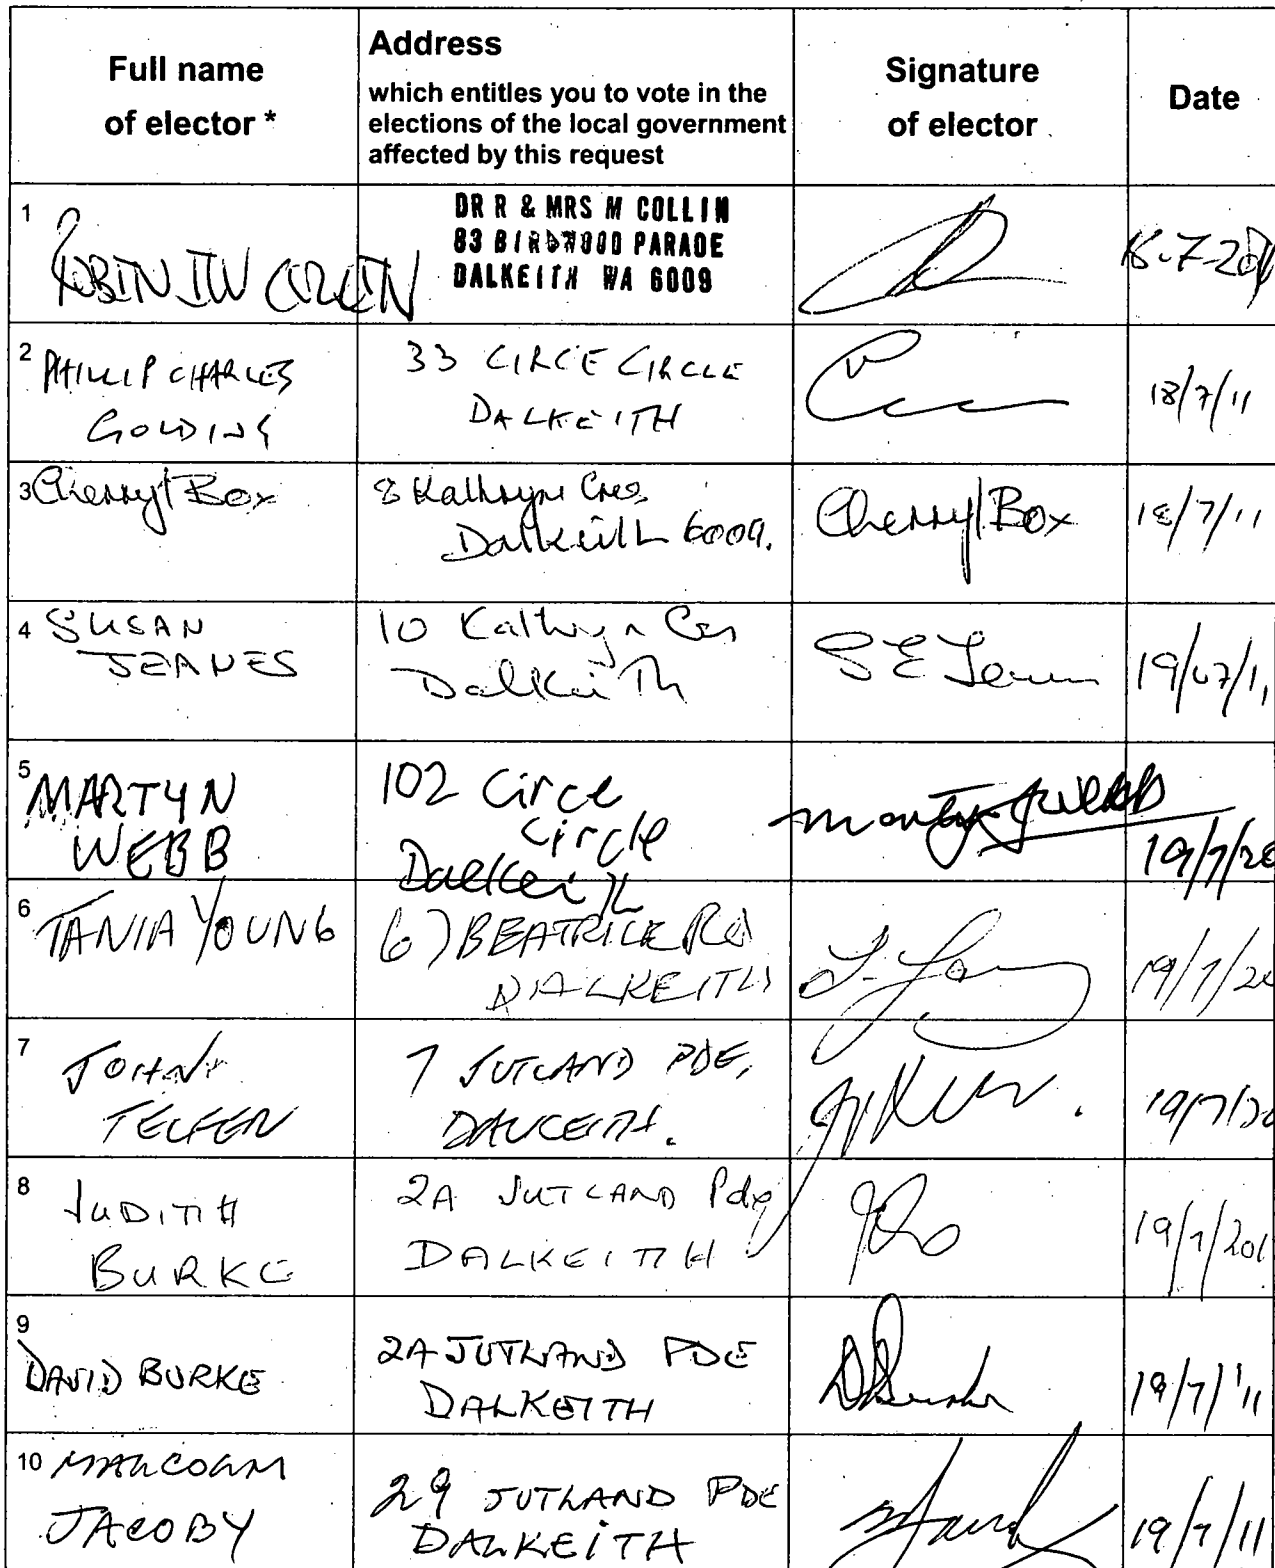 Full name
of elector *
Address
which entitles you to vote in the
elections of the local government
affected by this request
Signature
of elector
Date
1
ROBIN IW COLLIN
DR R & MRS M COLLIN
83 BIRDWOOD PARADE
DALKEITH WA 6009
2 PHILLIP CHARLES
GOLDING
33 CIRCE CIRCLE
DALKEITH
18/7/11
3 Cherry Box
8 Kathryn Cres
Dalkeith 6009.
Cherry Box
18/7/11
4 SUSAN
JEANES
10 Kathryn Cres
Dalkeith
19/07/1
5
MARTYN
WEBB
102 Circe
circle
Dalkeith
19/7/20
6
TANIA YOUNG
67 BEATRICE RD
DALKEITH
19/7/20
7
JOHN
TELFER
7 JUTLAND PDE,
DALKEITH.
19/7/20
8
JUDITH
BURKE
2A JUTLAND Pde
DALKEITH
19/7/201
9
DAVID BURKE
2A JUTLAND PDE
DALKEITH
19/7/'11
10 MALCOLM
JACOBY
29 JUTLAND PDE
DALKEITH
19/7/11